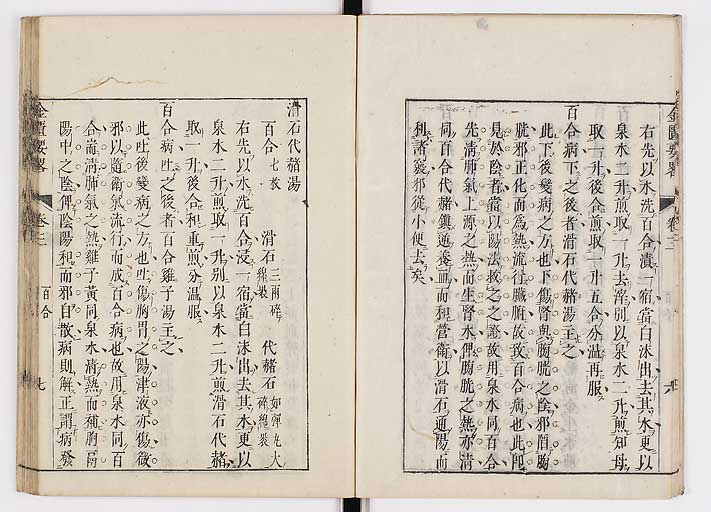 右先以水洗百合漬一宿當白沫出去其水更以
泉水二升煎取一升去滓別以泉水二升煎知母
取一升後合煎取一升五合分温再服
百合病下之後者滑石代赭湯主之
此下後變病之方也下傷腎與膀胱之陰邪
邪正化而爲熱流行臟腑故致百合病也此即
見於陰者當以陽法救之之證故用泉水同百合
先清肺氣上源之熱而生腎水俾膀胱之熱亦清
同百合代赭鎮逆養血而和營衛以滑石通陽而
利諸竅邪從小便去矣
金匱要畧
卷三
滑石代赭湯
百合七枚 滑石三兩碎綿裹 代赭石如彈丸大碎綿裹
右先以水洗百合浸一宿當白沫出去其水更以
泉水二升煎取一升別以泉水二升煎滑石代赭
取一升後合和重煎分温服
百合病吐之後者百合雞子湯主之
此吐後變病之方也吐傷胸胃之陽津液亦傷
邪以隨衛氣流行而成百合病也故用泉水同百
合崙清肺氣之熱雞子黃同泉水清熱而補胸
陽中之陰俾陰陽和而邪自散病則解正謂病發
金匱要畧
卷三
百合
七